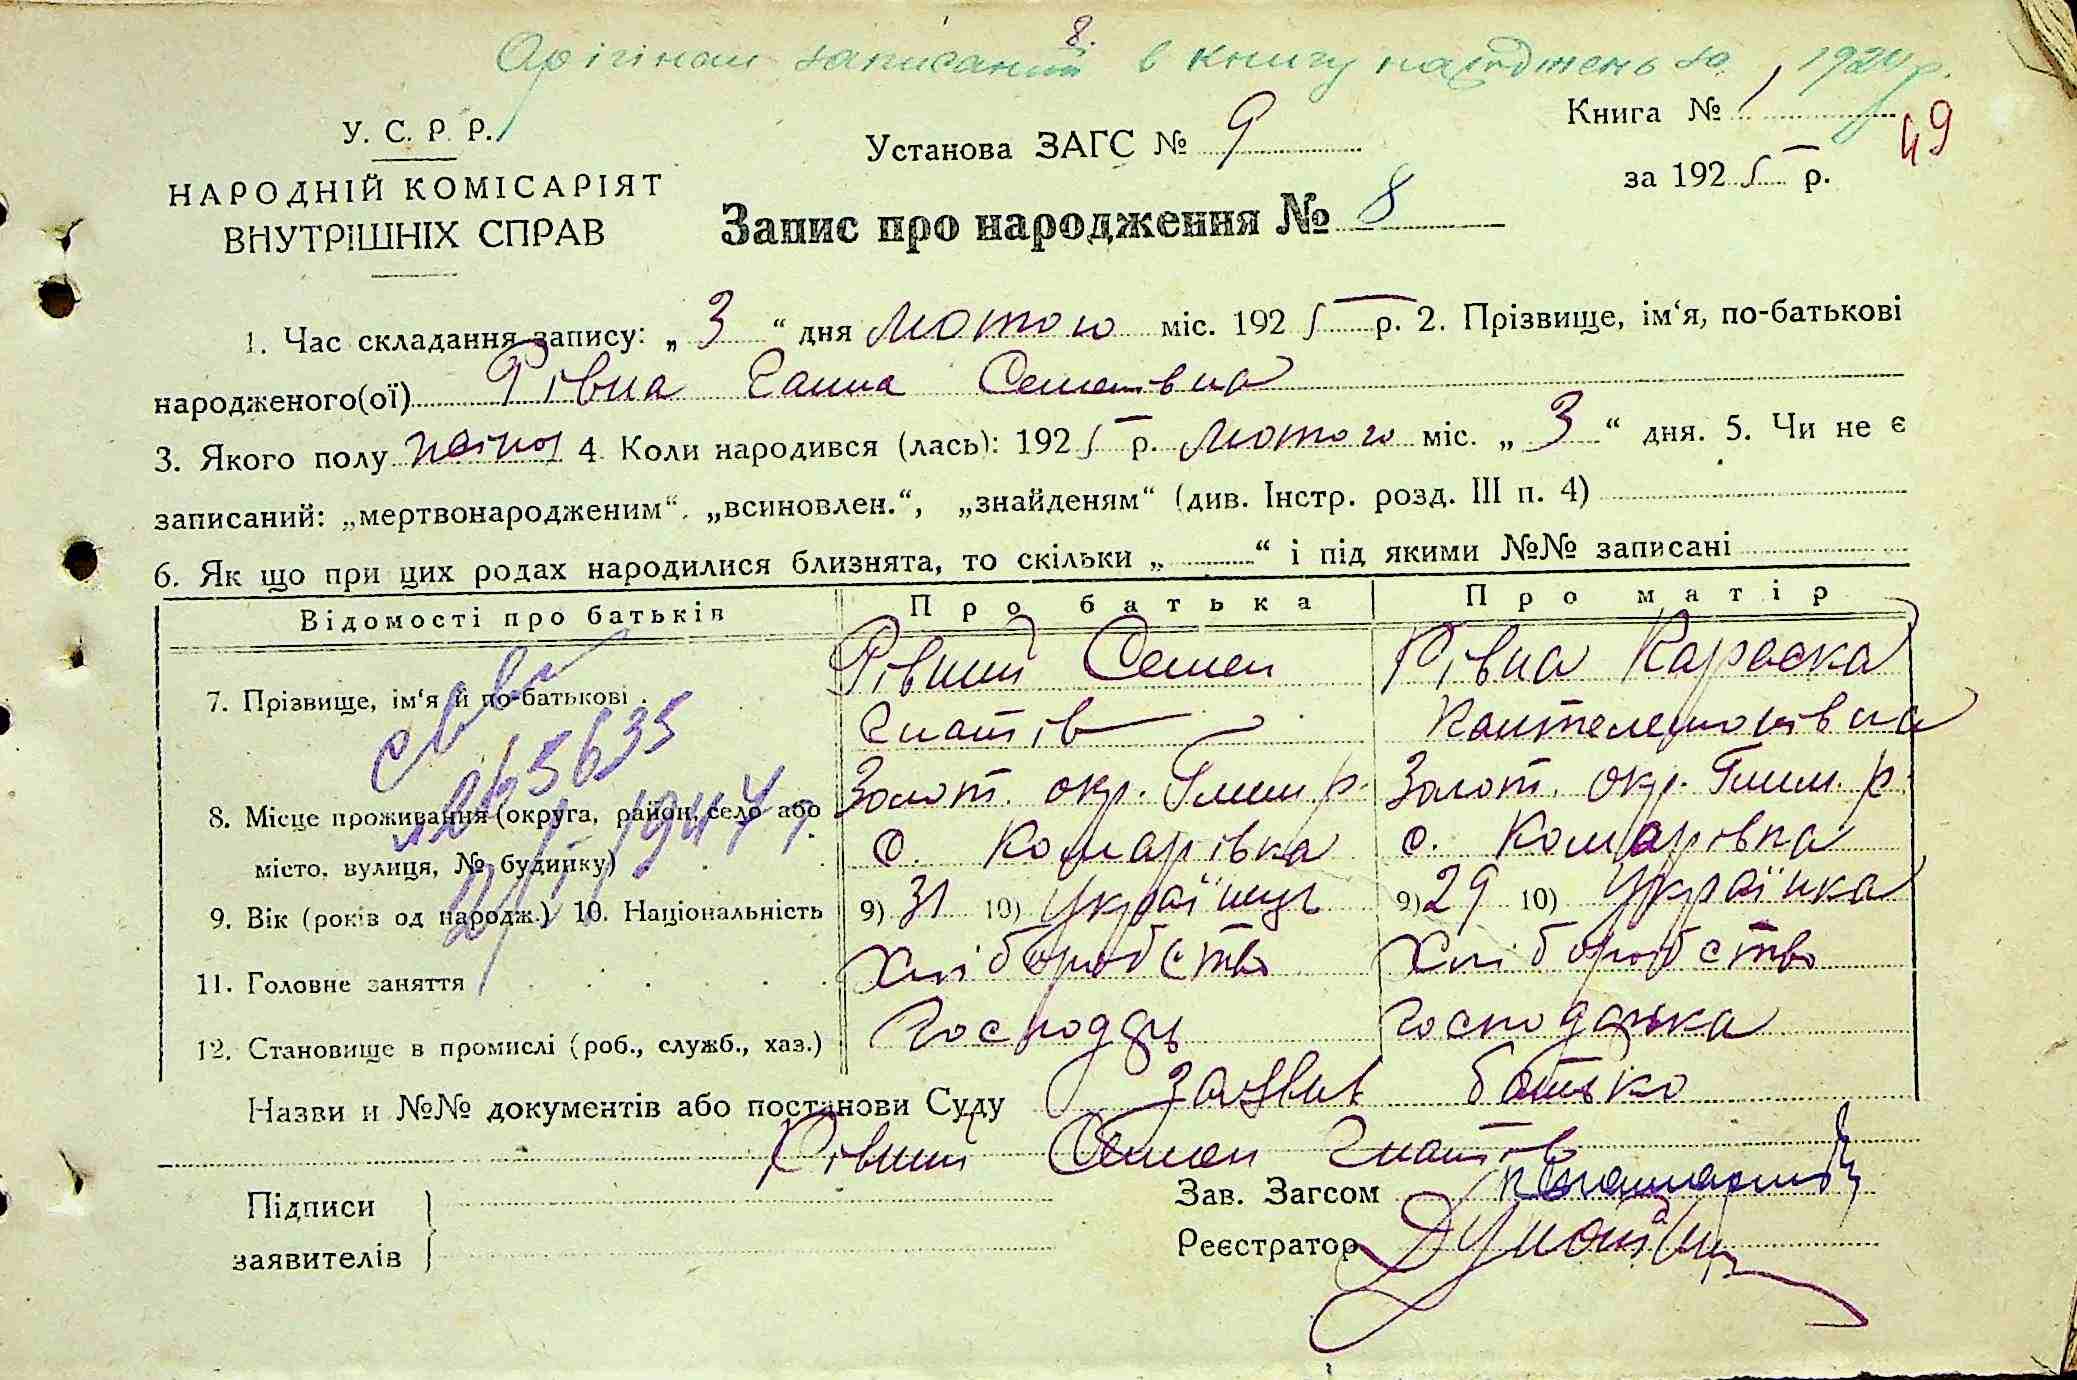 8.
Орігінал записаний в книгу народжень за 1924 р.
У. С. Р. Р.
НАРОДНІЙ КОМІСАРІЯТ
ВНУТРІШНІХ СПРАВ
Установа ЗАГС № 9
Книга № 1
49
за 1925 р.
Запис про народження № 8
1. Час складання запису: „ 3 “ дня Лютого міс. 1925 р. 2. Прізвище, ім‘я, по-батькові
народженого(ої) Рівна Ганна Семенівна
3. Якого полу 4. Коли народився (лась): 1925 р. Лютого міс. „ 3 “ дня. 5. Чи не є
записаний: „мертвонародженим“, „всиновлен.“, „знайденям“ (див. Інстр. розд. III п. 4)
6. Як що при цих родах народилися близнята, то скільки „ “ і під якими №№ записані
Відомості про батьків Про батька Про матір
7. Прізвище, ім‘я й по-батькові Рівний Семен Гнатів Рівна Параска Пантелемонівна
8. Місце проживання (округа, район, село або місто, вулиця, № будинку) Золот. окр. Глем. р. с. Комарівка Золот. окр. Глем. р. с. Комарівка
9. Вік (років од народж.) 10. Національність 9) 31 10) Українець 9) 29 10) Українка
11. Головне заняття Хліборобство Хліборобство
12. Становище в промислі (роб., служб., хаз.) Господарь Господарька
263635
1947 р.
Назви и №№ документів або постанови Суду заявив батько
Рівний Семен Гнатів
Підписи
заявителів
Зав. Загсом
Реєстратор